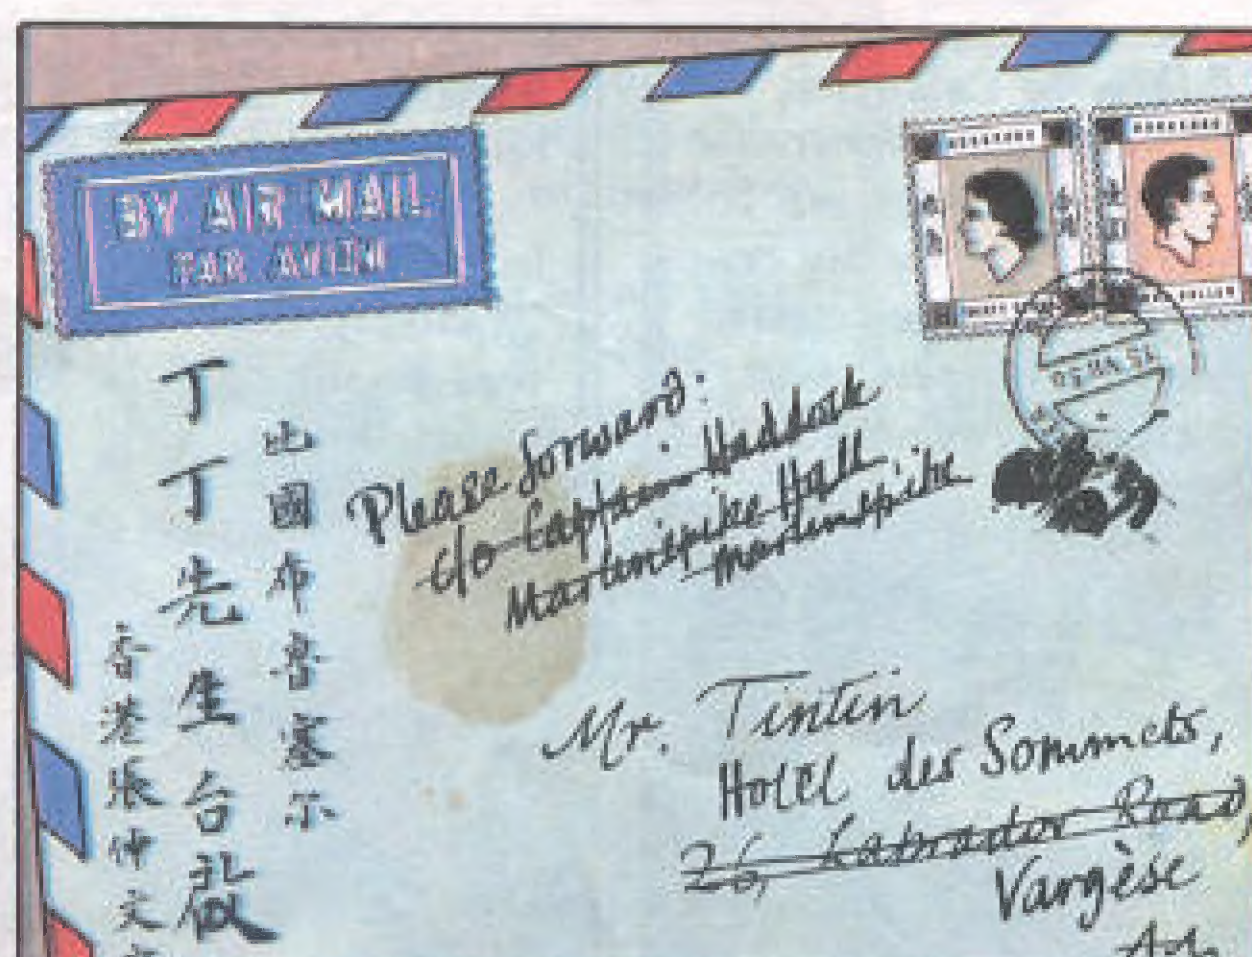 BY AIR MAIL
PAR AVION
比國布魯塞尔
丁丁先生台啟
香港張仲文
Please forward:
c/o Captain Haddock
Marlinspike Hall
Marlinspike
Mr. Tintin
Hotel des Sommets,
26, Labrador Road,
Vargèse